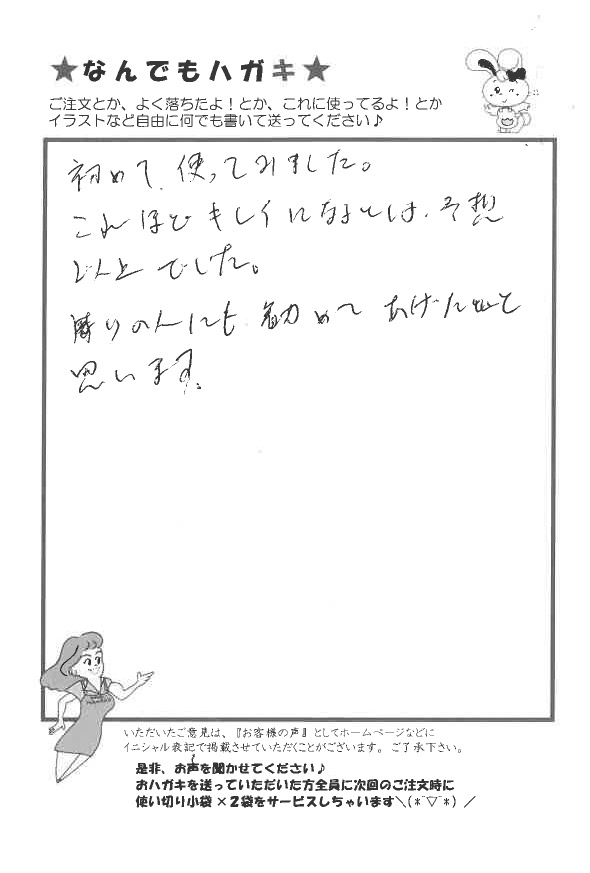 ★なんでもハガキ★
ご注文とか、よく落ちたよ！とか、これに使ってるよ！とか
イラストなど自由に何でも書いて送ってください♪
初めて、使ってみました。
これほどキレイになるとは、予想
以上でした。
周りの人にも勧めてあげたいと
思います。
いただいたご意見は、『お客様の声』としてホームページなどに
イニシャル表記で掲載させていただくことがございます。ご了承下さい。
是非、お声を聞かせてください♪
おハガキを送っていただいた方全員に次回のご注文時に
使い切り小袋×２袋をサービスしちゃいます＼(*¯▽¯*)／